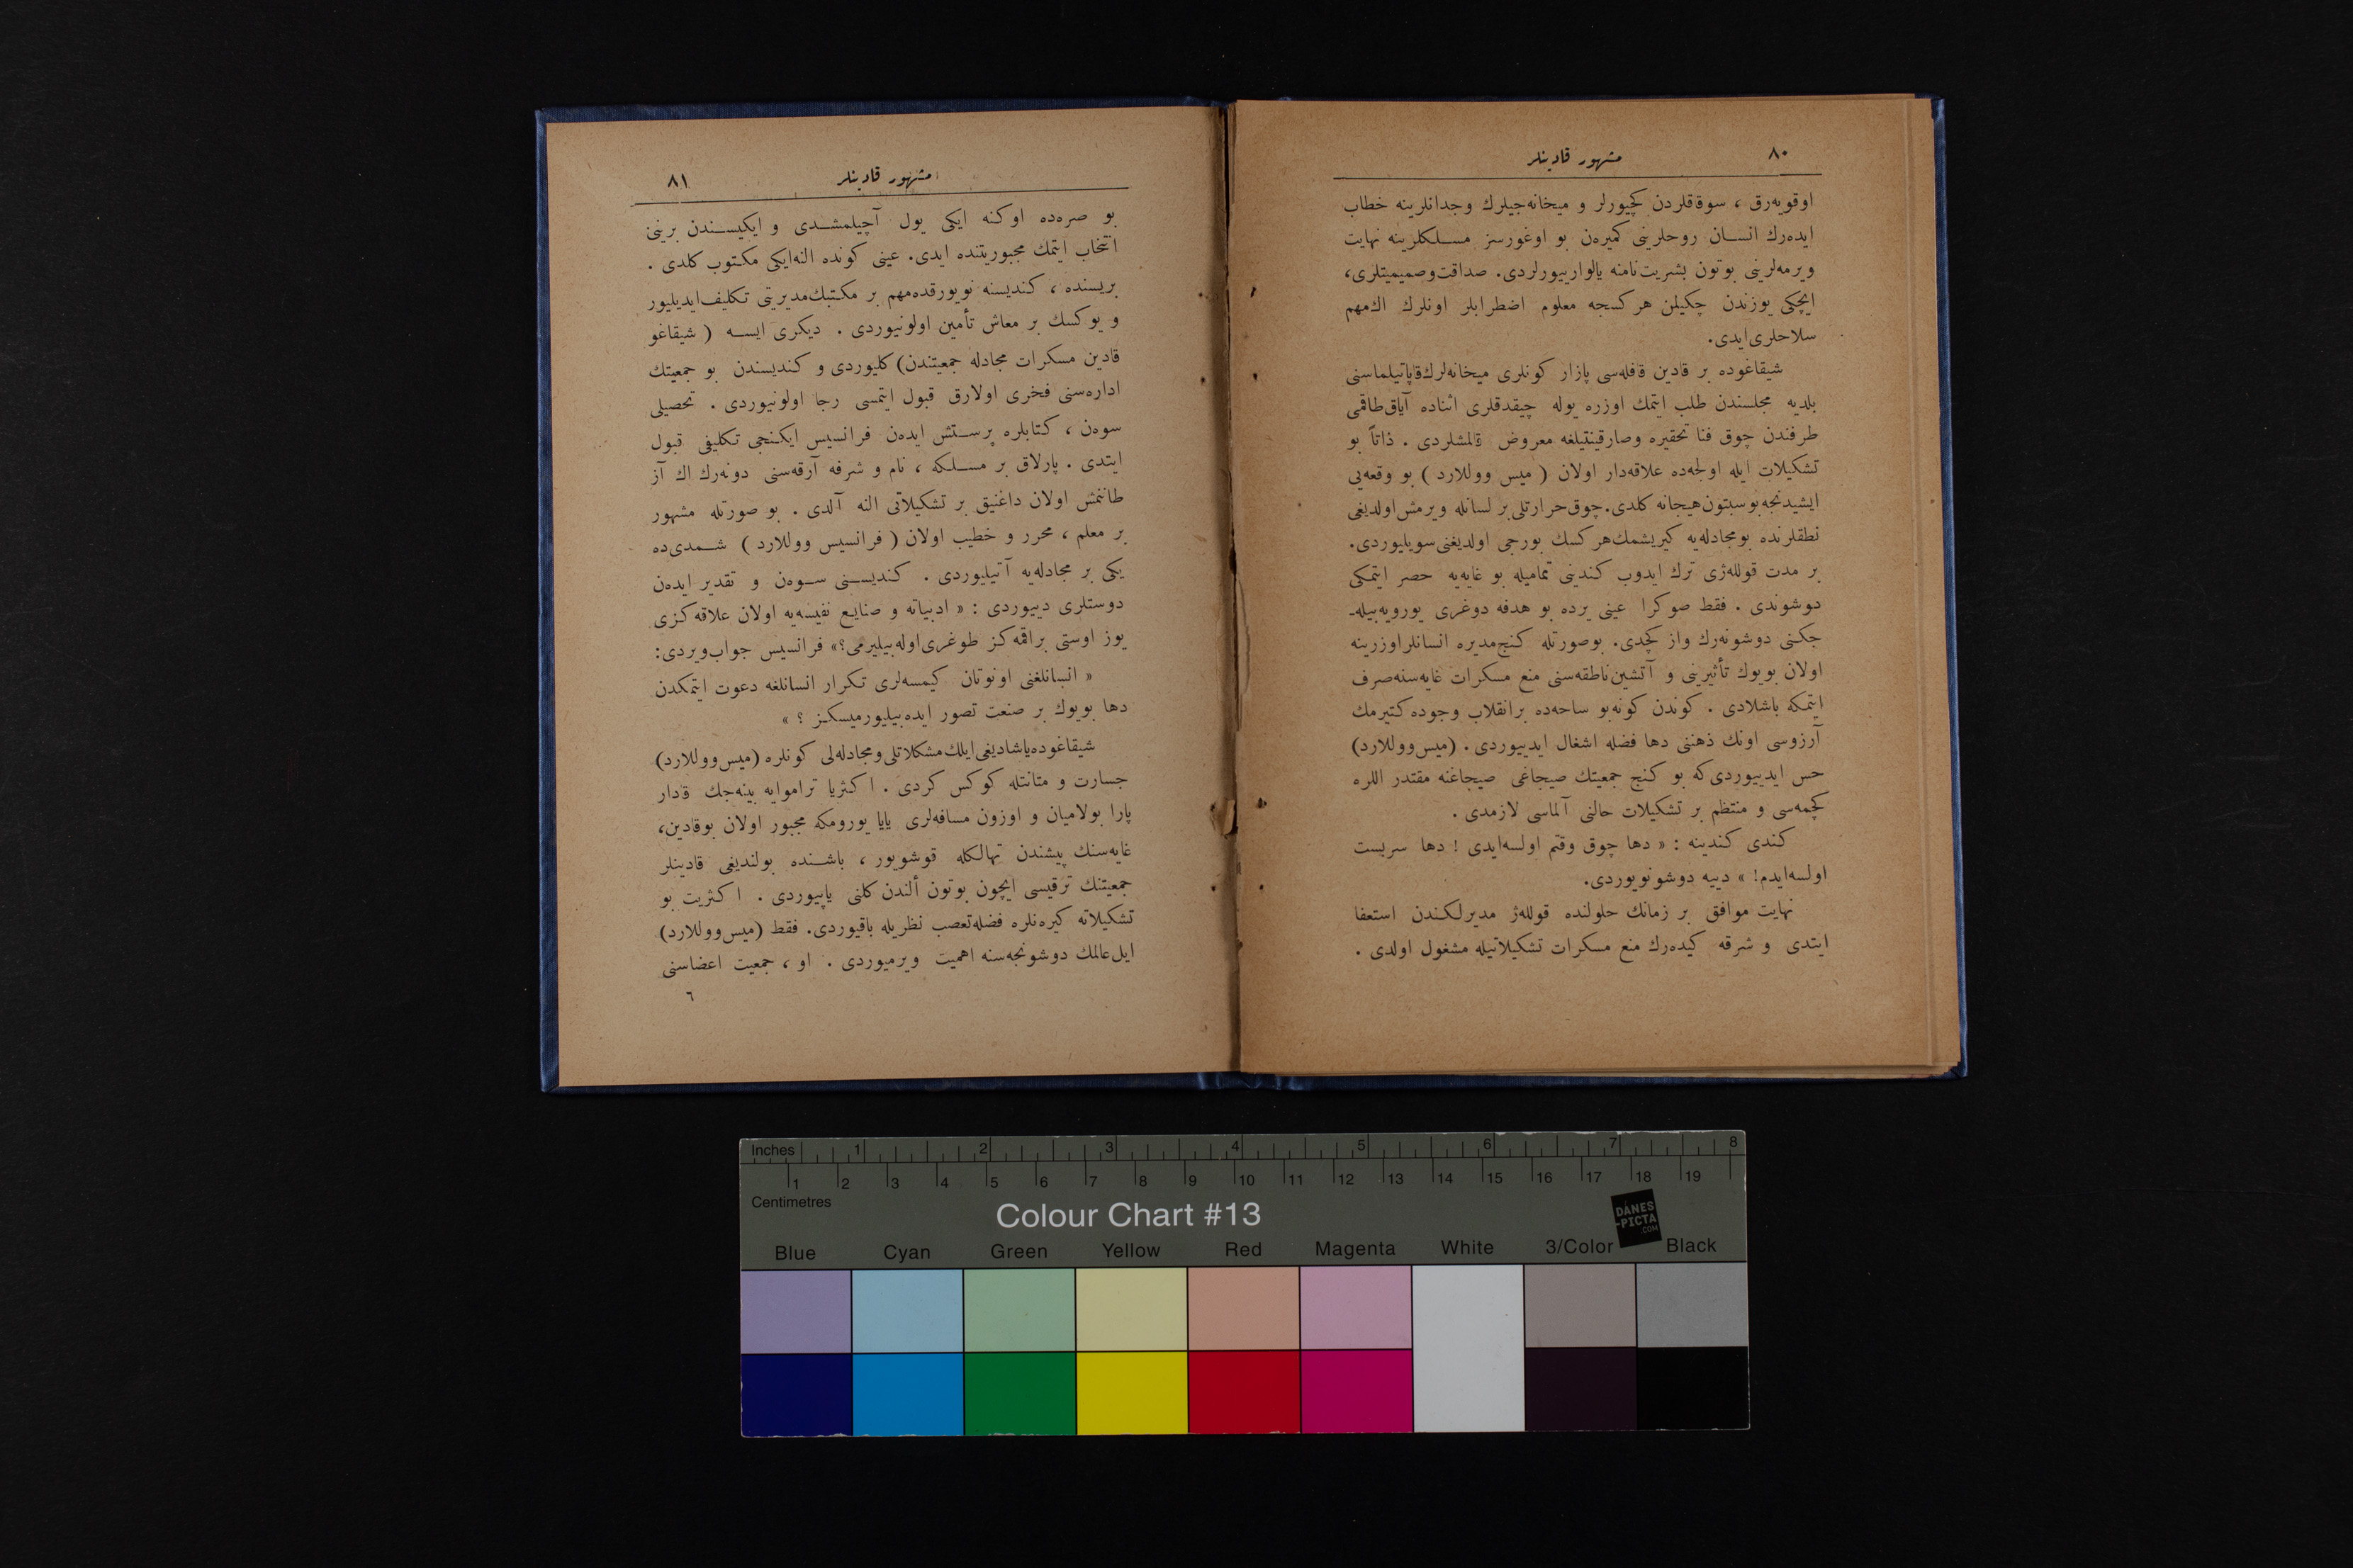 ٨٠
مشهور قادینلر
اوقویه‌رق ، سوقاقلردن كچیورلر و میخانه‌جیلرك وجدانلرینه خطاب
ایده‌رك انسان روحلرینی كمیره‌ن بو اوغورسز مسلكلرینه نهایت
ویرمه‌لرینی بوتون بشریت نامنه یالوارییورلردی. صداقت و صمیمیتلری،
ایچكی یوزندن چكیلمن هركسجه معلوم اضطرابلر اونلرك اك مهم
سلاحلری ایدی.
شیقاغوده بر قادین قافله‌سی پازار كونلری میخانه‌لرك قاپاتیلماسنی
بلدیه مجلسندن طلب ایتمك اوزره یوله چیقدقلری اثناده آیاق طاقمی
طرفندن چوق فنا تحقیره و صارقینتیلغه معروض قالمشلردی . ذاتاً بو
تشكیلات ایله اولجه‌ده علاقه‌دار اولان ( میس ووللارد ) بو وقعه‌یی
ایشیدنجه بوسبتون هیجانه كلدی. چوق حرارتلی بر لسانله ویرمش اولدیغی
نطقلرنده بو مجادله‌یه كیریشمك هر كسك بورجی اولدیغنی سویلیوردی.
بر مدت قوللەژی ترك ایدوب كندینی تمامیله بو غایه‌یه حصر ایتمكی
دوشوندی . فقط صوكرا عینی یرده بو هدفه دوغری یورویه‌بیله‌ـ
جكنی دوشونه‌رك واز كچدی. بو صورتله كنج مدیره انسانلر اوزرینه
اولان بویوك تأثیرینی و آتشین ناطقه‌سنی منع مسكرات غایه‌سنه صرف
ایتمكه باشلادی . كوندن كونه بو ساحه‌ده بر انقلاب وجوده كتیرمك
آرزوسی اونك ذهننی دها فضله اشغال ایدییوردی. (میس ووللارد)
حس ایدییوردی كه بو كنج جمعیتك صیجاغی صیجاغنه مقتدر اللره
كچمه‌سی و منتظم بر تشكیلات حالنی آلماسی لازمدی .
كندی كندینه : « دها چوق وقتم اولسه‌ایدی ! دها سربست
اولسه‌ایدم! » دییه دوشونویوردی.
نهایت موافق بر زمانك حلولنده قوللەژ مدیرلكندن استعفا
ایتدی و شرقه كیده‌رك منع مسكرات تشكیلاتیله مشغول اولدی .
مشهور قادینلر
٨١
بو صره‌ده اوكنه ایكی یول آچیلمشدی و ایكیسندن برینی
انتخاب ایتمك مجبوریتنده ایدی. عینی كونده النه ایكی مكتوب كلدی .
بریسنده ، كندیسنه نویورقده مهم بر مكتبك مدیریتی تكلیف ایدیلیور
و یوكسك بر معاش تأمین اولونیوردی . دیكری ایسه ( شیقاغو
قادین مسكرات مجادله جمعیتندن) كلیوردی و كندیسندن بو جمعیتك
اداره‌سنی فخری اولارق قبول ایتمسی رجا اولونیوردی . تحصیلی
سوه‌ن ، كتابلره پرستش ایده‌ن فرانسیس ایكنجی تكلیفی قبول
ایتدی . پارلاق بر مسلكه ، نام و شرفه آرقه‌سنی دونه‌رك اك آز
طاننمش اولان داغنیق بر تشكیلاتی النه آلدی . بو صورتله مشهور
بر معلم ، محرر و خطیب اولان ( فرانسیس ووللارد ) شمدی‌ده
یكی بر مجادله‌یه آتیلیوردی . كندیسنی سوه‌ن و تقدیر ایده‌ن
دوستلری دییوردی : « ادبیاته و صنایع نفیسه‌یه اولان علاقه‌كزی
یوز اوستی براقمه‌كز طوغری اوله‌بیلیرمی؟» فرانسیس جواب ویردی:
« انسانلغنی اونوتان كیمسه‌لری تكرار انسانلغه دعوت ایتمكدن
دها بویوك بر صنعت تصور ایده‌بیلیورمیسكز ؟ »
شیقاغوده یاشادیغی ایلك مشكلاتلی و مجادله‌لی كونلره (میس ووللارد)
جسارت و متانتله كوكس كردی . اكثریا تراموایه بینه‌جك قادار
پارا بولامیان و اوزون مسافه‌لری یایا یورومكه مجبور اولان بو قادین،
غایه‌سنك پیشندن تهالكله قوشویور ، باشنده بولندیغی قادینلر
جمعیتنك ترقیسی ایچون بوتون ألندن كلنی یاپییوردی . اكثریت بو
تشكیلاته كیره‌نلره فضله تعصب نظریله باقیوردی. فقط (میس ووللارد)
ایل عالمك دوشونجه‌سنه اهمیت ویرمیوردی . او ، جمعیت اعضاسنی
٦
Inches 1 2 3 4 5 6 7 8
1 2 3 4 5 6 7 8 9 10 11 12 13 14 15 16 17 18 19
Centimetres
Colour Chart #13
DANES
-PICTA
.COM
Blue Cyan Green Yellow Red Magenta White 3/Color Black